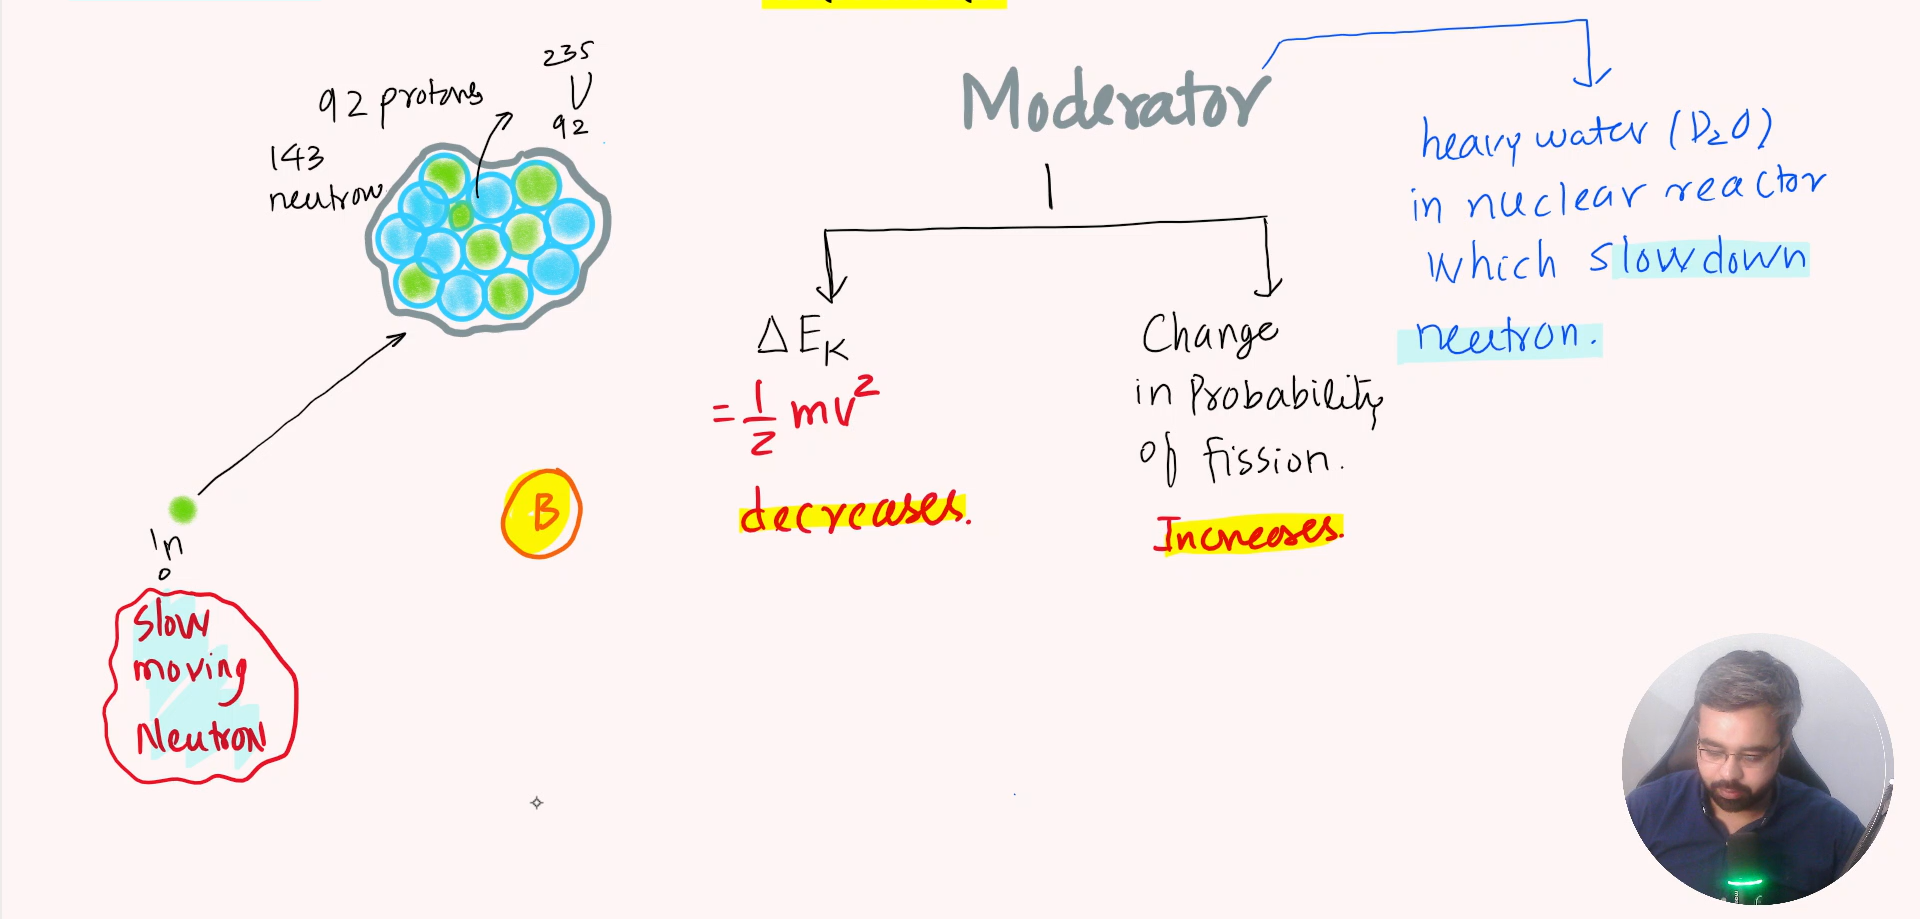 235
U
92
92 protons
143
neutron
1
n
0
Slow
moving
Neutron
B
Moderator
ΔEK
= 1/2 mv²
decreases.
Change
in Probability
of fission.
Increases.
heavy water (D₂O)
in nuclear reactor
which slowdown
neutron.